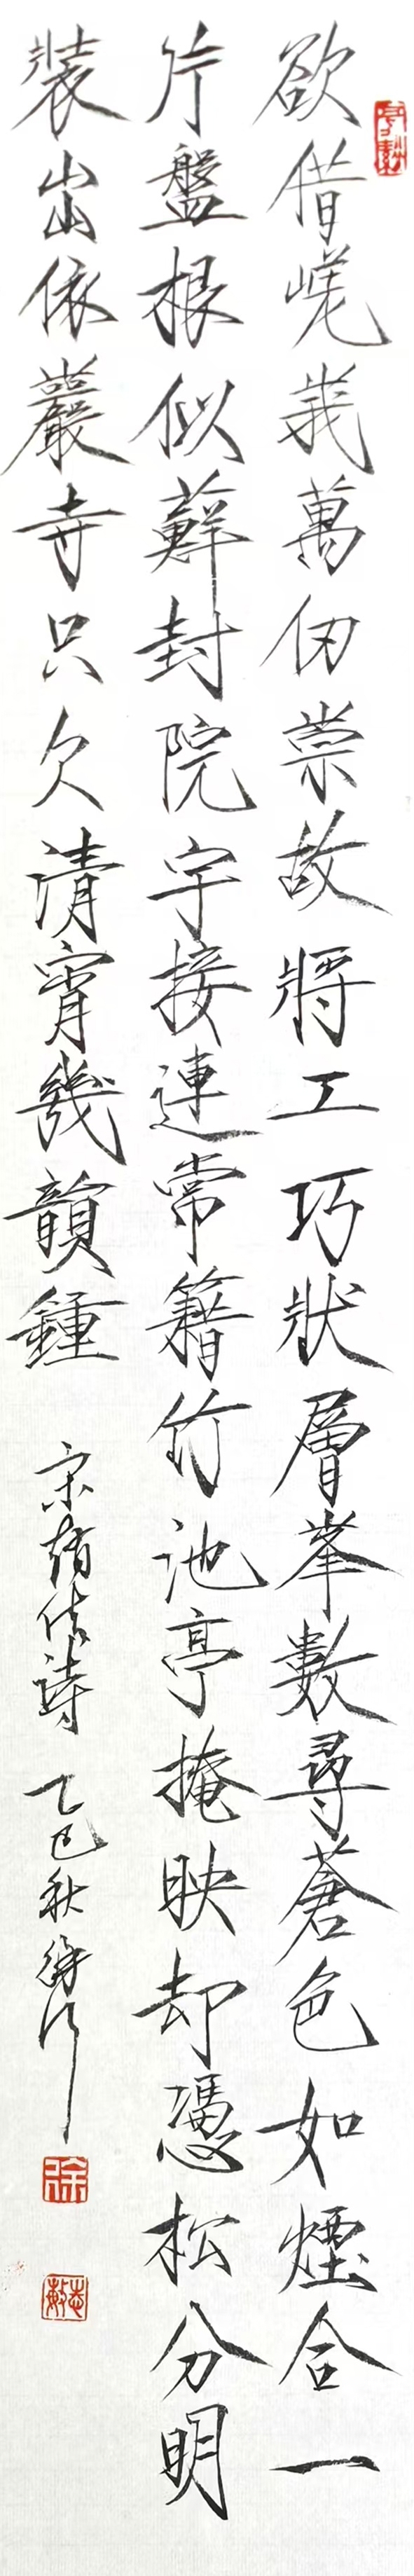 欲借嵯峨萬仞崇故將工巧狀層峯數尋蒼色如煙合一
片盤根似蘚封院宇接連常籍竹池亭掩映却憑松分明
裝出依巖寺只欠清宵幾韻鐘
宋趙佶詩 乙巳秋
徐